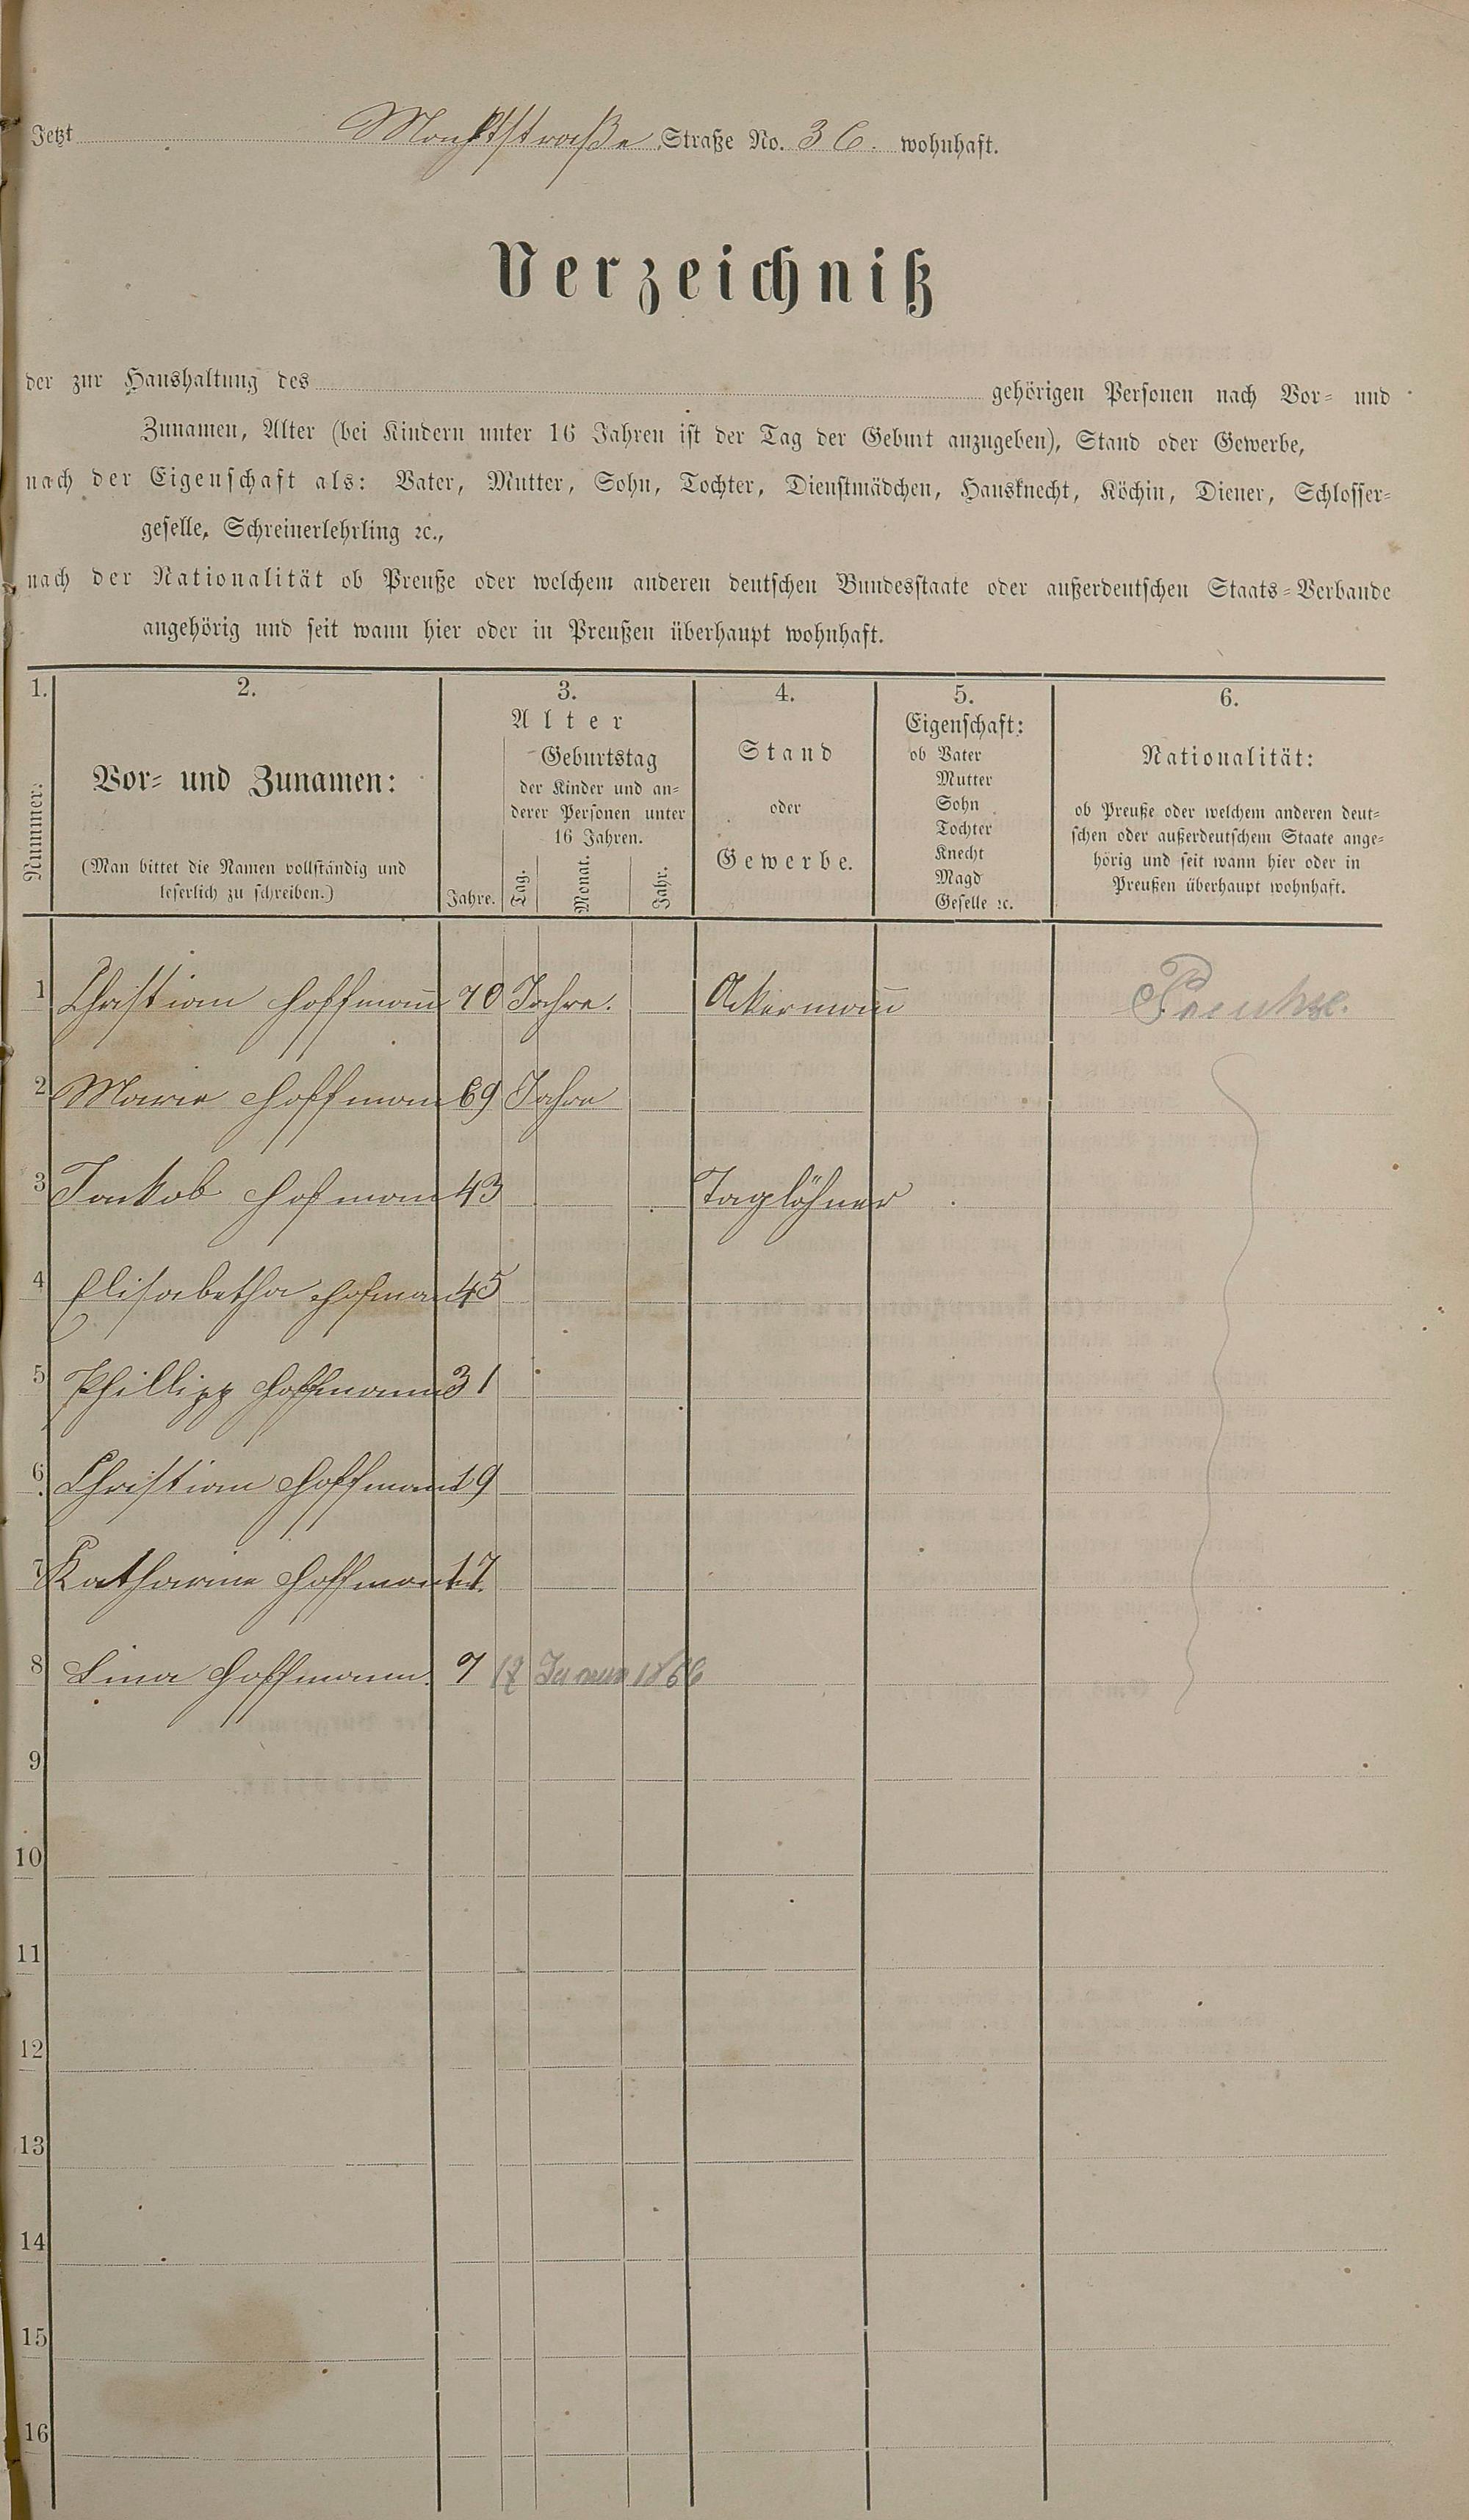 Jetzt Marktstraße Straße No. 36. wohnhaft.
Verzeichniß
der zur Haushaltung des gehörigen Personen nach Vor- und
Zunamen, Alter (bei Kindern unter 16 Jahren ist der Tag der Geburt anzugeben), Stand oder Gewerbe,
nach der Eigenschaft als: Vater, Mutter, Sohn, Tochter, Dienstmädchen, Hausknecht, Köchin, Diener, Schlosser-
geselle, Schreinerlehrling ꝛc.,
nach der Nationalität ob Preuße oder welchem anderen deutschen Bundesstaate oder außerdeutschen Staats-Verbande
angehörig und seit wann hier oder in Preußen überhaupt wohnhaft.
1. 2. 3. 4. 5. 6.
Nummer.
Vor- und Zunamen:
(Man bittet die Namen vollständig und
leserlich zu schreiben.)
Alter
Jahre.
Geburtstag
der Kinder und an-
derer Personen unter
16 Jahren.
Tag. Monat. Jahr.
Stand
oder
Gewerbe.
Eigenschaft:
ob Vater
Mutter
Sohn
Tochter
Knecht
Magd
Geselle ꝛc.
Nationalität:
ob Preuße oder welchem anderen deut-
schen oder außerdeutschem Staate ange-
hörig und seit wann hier oder in
Preußen überhaupt wohnhaft.
1 Christian Hoffman̄ 70 Jahre. Ackerman̄ Preuße.
2 Marie Hoffmann 69 Jahre
3 Jaukob Hofmann 43 Taglöhner
4 Elisabetha Hofmann 45
5 Phillipp Hoffmann 31
6 Christian Hoffmann 19
7 Katharine Hoffmann 17.
8 Lina Hoffmann. 7 Januar 1866
9
10
11
12
13
14
15
16